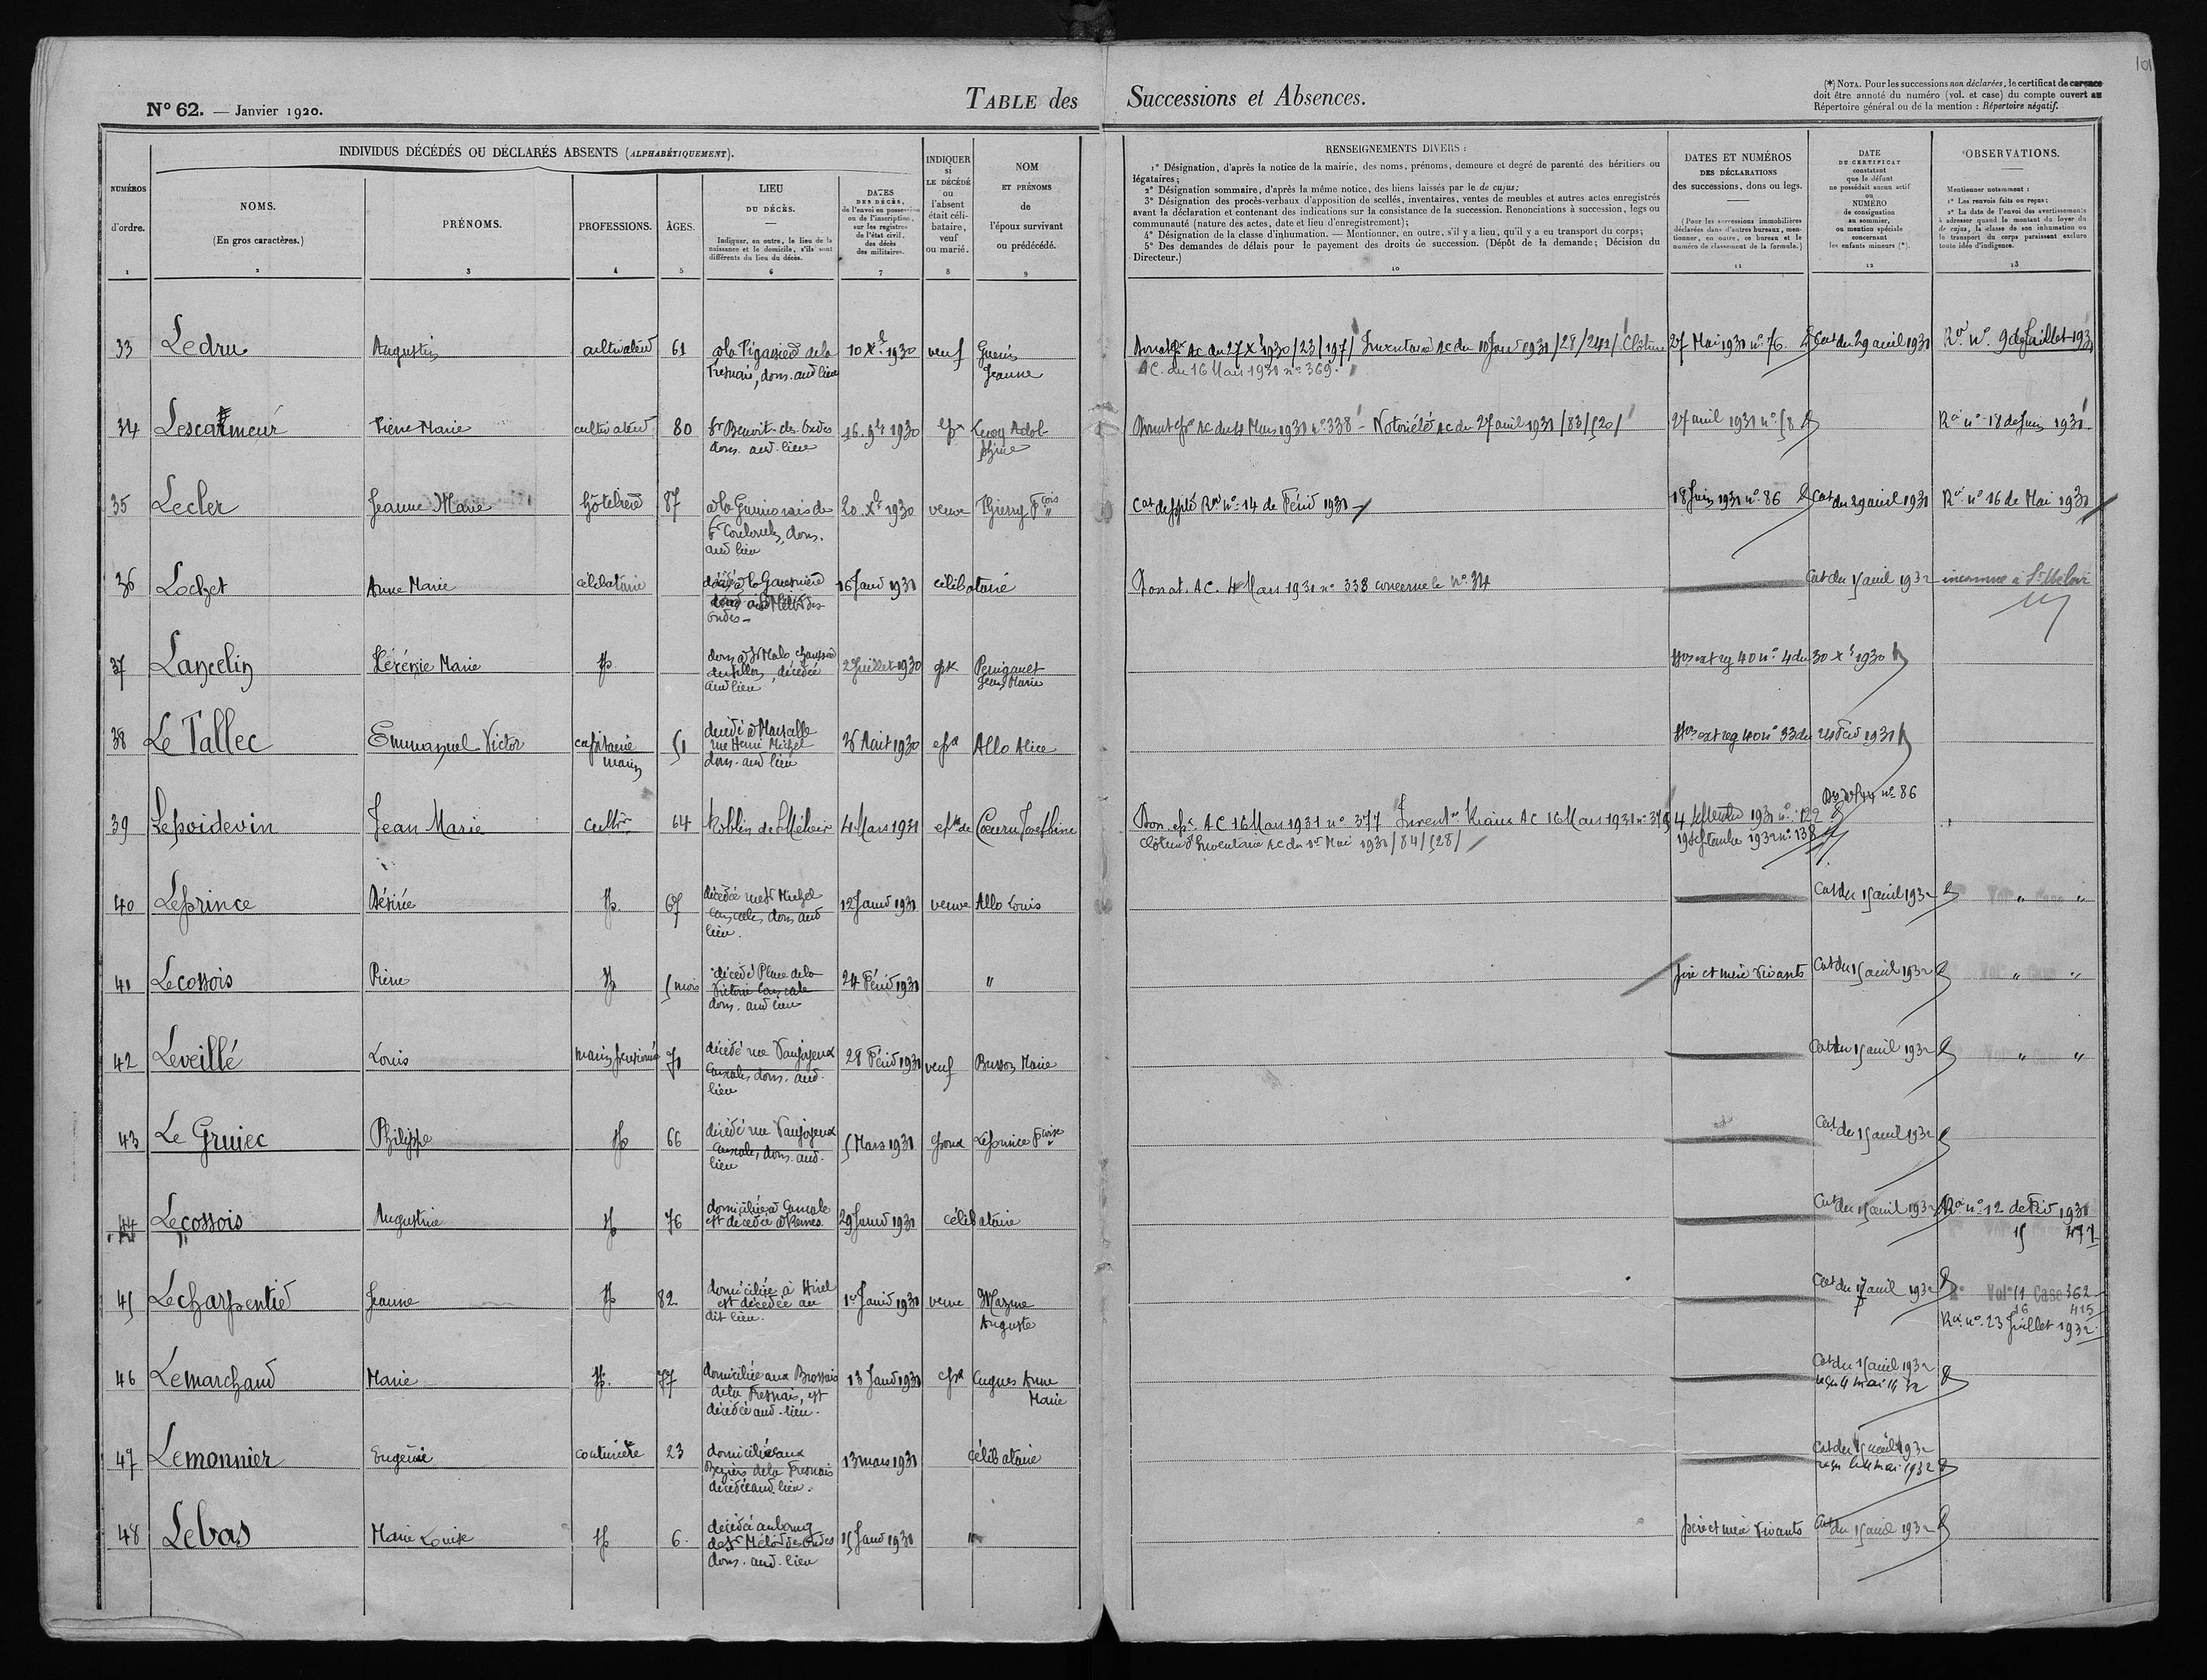 101
(*) NOTA. Pour les successions non déclarées, le certificat de carence
doit être annoté du numéro (vol. et case) du compte ouvert au
Répertoire général ou de la mention : Répertoire négatif.
N° 62. — Janvier 1920.
TABLE des Successions et Absences.
INDIVIDUS DÉCÉDÉS OU DÉCLARÉS ABSENTS (ALPHABÉTIQUEMENT).
NUMÉROS
d'ordre.
1
NOMS.
(En gros caractères.)
2
PRÉNOMS.
3
PROFESSIONS.
4
ÂGES.
5
LIEU
DU DÉCÈS.
Indiquer, en outre, le lieu de la
naissance et le domicile, s'ils sont
différents du lieu du décès.
6
DATES
DES DÉCÈS,
de l'envoi en possession
ou de l'inscription,
sur les registres
de l'état civil,
des décès
des militaires.
7
INDIQUER
si
LE DÉCÉDÉ
ou
l'absent
était céli-
bataire,
veuf
ou marié.
8
NOM
ET PRÉNOMS
de
l'époux survivant
ou prédécédé.
9
RENSEIGNEMENTS DIVERS :
1° Désignation, d'après la notice de la mairie, des noms, prénoms, demeure et degré de parenté des héritiers ou
légataires;
2° Désignation sommaire, d'après la même notice, des biens laissés par le de cujus;
3° Désignation des procès-verbaux d'apposition de scellés, inventaires, ventes de meubles et autres actes enregistrés
avant la déclaration et contenant des indications sur la consistance de la succession. Renonciations à succession, legs ou
communauté (nature des actes, date et lieu d'enregistrement);
4° Désignation de la classe d'inhumation. — Mentionner, en outre, s'il y a lieu, qu'il y a eu transport du corps;
5° Des demandes de délais pour le payement des droits de succession. (Dépôt de la demande; Décision du
Directeur.)
10
DATES ET NUMÉROS
DES DÉCLARATIONS
des successions, dons ou legs.
(Pour les successions immobilières
déclarées dans d'autres bureaux, men-
tionner, en outre, ce bureau et le
numéro de classement de la formule.)
11
DATE
DU CERTIFICAT
constatant
que le défunt
ne possédait aucun actif
ou
NUMÉRO
de consignation
au sommier,
ou mention spéciale
concernant
les enfants mineurs (*).
12
OBSERVATIONS.
Mentionner notamment :
1° Les renvois faits ou reçus;
2° La date de l'envoi des avertissements
à adresser quand le montant du loyer du
de cujus, la classe de son inhumation ou
le transport du corps paraissent exclure
toute idée d'indigence.
13
33 Ledru Augustin cultivateur 61 10 Xbre 1930 veuf Guerin
Jeanne
Fresnais, dom. aud lieu
AC du 27 Xbre 1930 /23/197/ Inventaire AC du 10 Janv 1931 /28/242/ Clôture
AC. du 16 Mars 1931 n° 369.
27 Mai 1931 n° 76. Cat du 29 avril 1931 Roi n° 9 de Juillet 1931
34 Pierre Marie cultivateur 80 St Benoit des Ondes
dom. aud. lieu
16. 9bre 1930 epx Leroy Adol-
phine
Mars 1931 n° 338 - Notoriété AC du 27 avril 1931 /83/520/
27 avril 1931 n° 58 Roi n° 18 de Juin 1931
35 Lecler Jeanne Marie hôtelière 87 St Coulomb, dom.
aud lieu
20. Xbre 1930 veuve Thierry Fcois
Roi n° 14 de Février 1931
18 Juin 1931 n° 86 Cat du 29 avril 1931 Roi n° 16 de Mai 1931
36 Lochet Anne Marie célibataire 16 Janv 1931 célibataire
Donat. AC. 4 Mars 1931 n° 338 concerne le n° 34
Cat du 15 avril 1932 inconnue à St Méloir
37 Lancelin Marie sp. dom à St Malo chaussée
du Sillon, décédée
aud lieu
2 Juillet 1930 epx
Jean Marie
reg 40 n° 4 du 30 Xbre 1930
38 Le Tallec Emmanuel Victor capitaine
marin
51 décédé à Marseille
rue Henri Michel
dom. aud lieu
Août 1930 epx Allo Alice
reg 40 n° 33 du 24 Fév 1931
39 Lepoidevin Jean Marie Cultr 64 Roblin de St Méloir 4 Mars 1931 epx de Cœuru Joséphine
Don. epx. AC 16 Mars 1931 n° 377 AC 16 Mars 1931 n° 376
Clôture d'Inventaire AC du 1er Mai 1931 /84/528/
4 Septembre 1931 n° 122
19 Septembre 1932 n° 138
n° 86
40 Leprince Désirée sp. 67 décédée rue St Michel
Cancale, dom aud
lieu.
12 Janv 1931 veuve Allo Louis
Cat du 15 avril 1932 " "
41 Lecossois Pierre sp 5 mois décédé Place de la
Victoire Cancale
dom. aud lieu
24 Févr 1931 "
père et mère vivants Cat du 15 avril 1932 " "
42 Leveillé Louis marin pensionné 71 décédé rue Vaujoyeux
Cancale, dom. aud.
lieu
28 Févr 1931 veuf Busson Marie
Cat du 15 avril 1932 " "
43 Le Gruiec Philippe sp 66 décédé rue Vaujoyeux
Cancale, dom. aud.
lieu
5 Mars 1931 époux Leprince Fcoise
Cat du 15 avril 1932
44 Lecossois Augustine sp 76 domiciliée à Cancale
est décédée à Rennes
29 Janv 1931 célibataire
Cat du 15 avril 1932 Roi n° 12 de Fév 1931
15 477
45 Lecharpentier Jeanne sp 82 domiciliée à Hirel
est décédée au
dit lieu.
1er Janv 1931 veuve Mazure
Auguste
Cat du 17 avril 1932 R° Vol° 11 Case 362
16 415
Roi n° 23 Juillet 1932
46 Lemarchand Marie sp. 77 domiciliée aux Brossais
de la Fresnais, est
décédée aud. lieu.
13 Janv 1931 epx Cugnes Anne
Marie
Cat du 15 avril 1932
47 Lemonnier Eugénie couturière 23 domiciliée aux
de la Fresnais
décédée aud. lieu.
13 mars 1931 célibataire
Cat du 15 avril 1932
reçu le 4 mai 1932
48 Lebas Marie Louise sp 6 décédée au bourg
de St Méloir des Ondes
dom. aud. lieu
15 Janv 1931 "
père et mère vivants Cat du 15 avril 1932